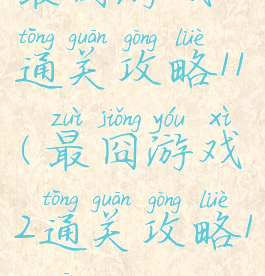 tōng guān gōng lüè
通关攻略11
zuì jiǒng yóu xì
(最囧游戏
tōng guān gōng lüè
2通关攻略1